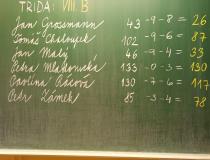 TŘÍDA: VIII.B
Jan Grossmann 43 -9-8 = 26
Tomáš Chaloupek 102 -9-6 = 87
Jan Malý 46 -9-4 = 33
Petra 133 -0-3 = 130
Pavlína Rácová 130 -7-6 = 117
Petr Zámek 85 -3-4 = 78